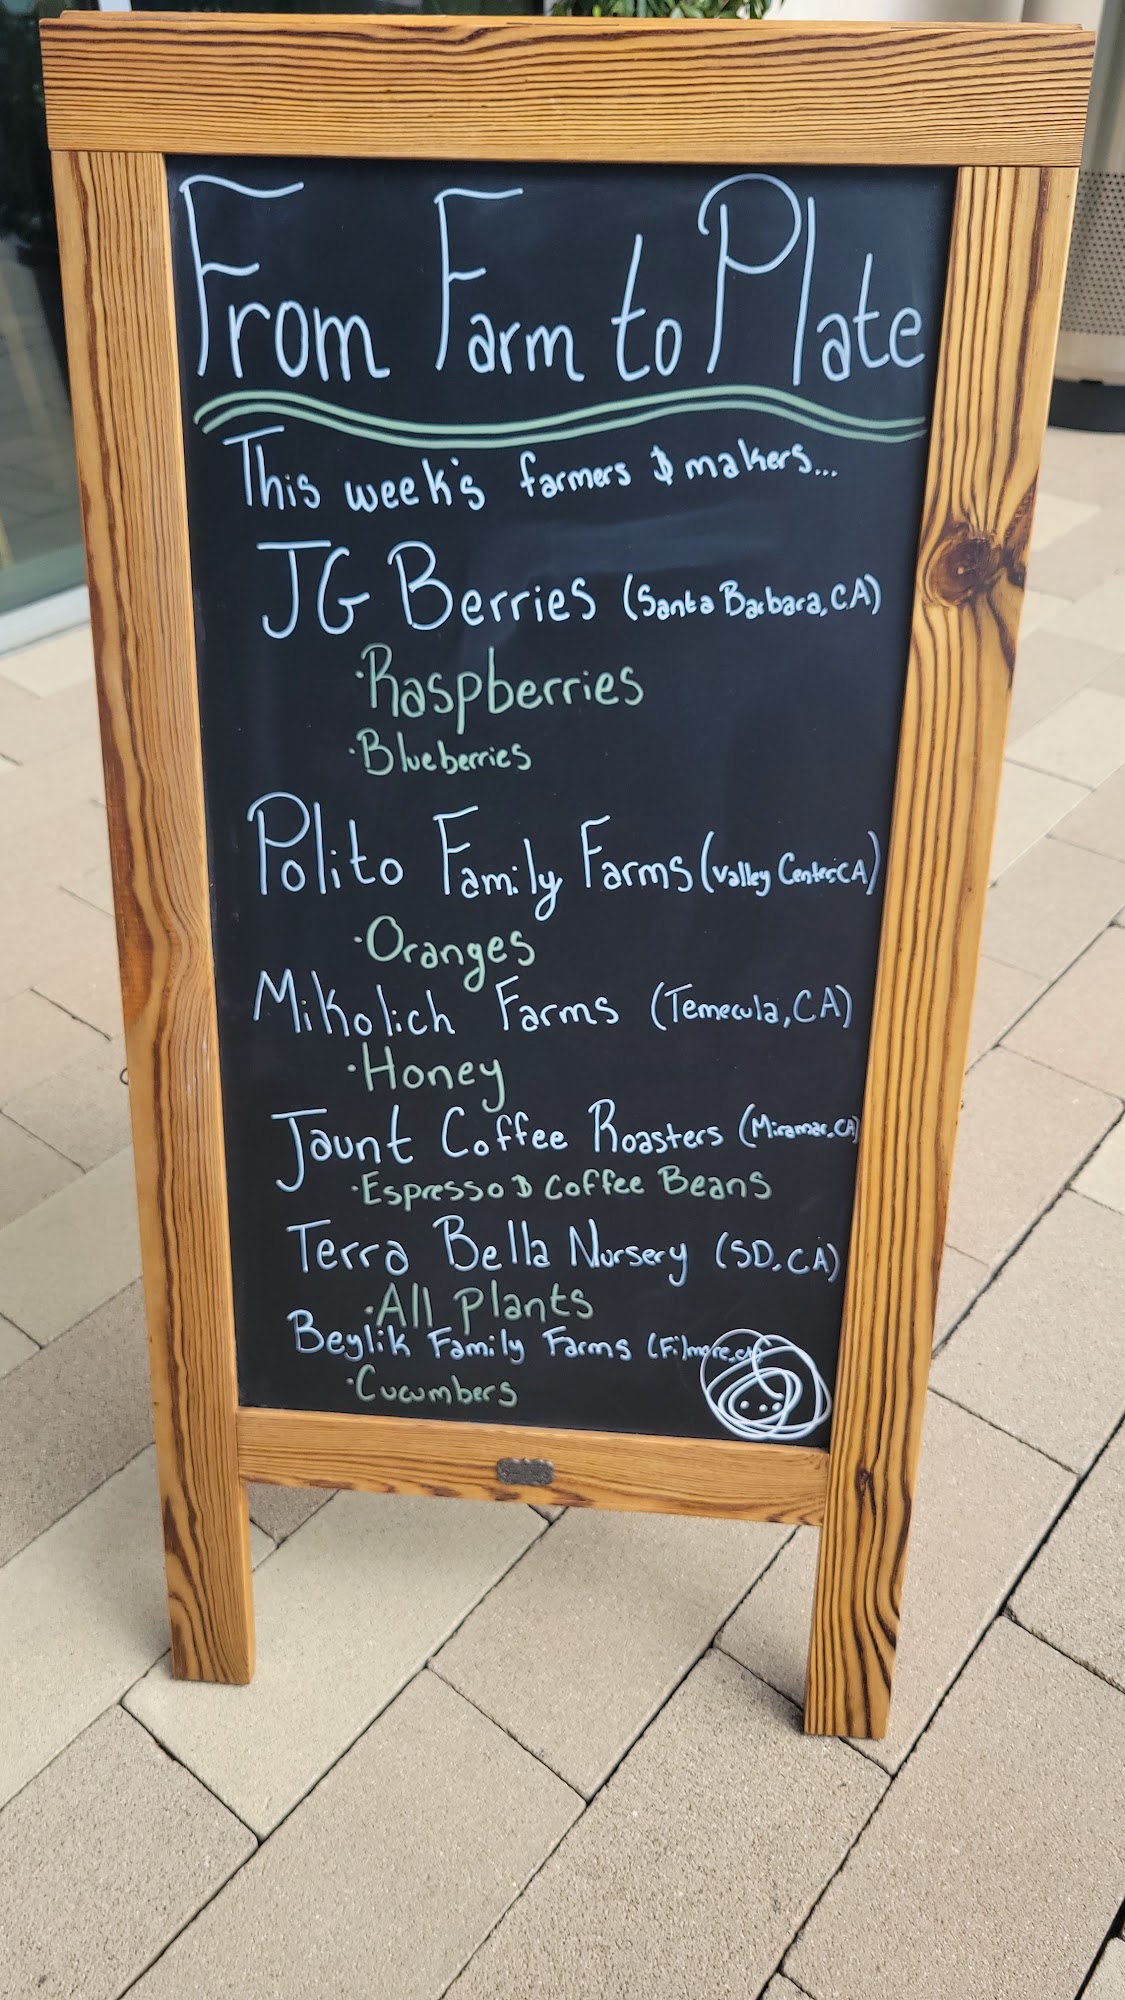 From Farm to Plate
This week's farmers & makers...
JG Berries (Santa Barbara, CA)
·Raspberries
·Blueberries
Polito Family Farms (Valley Center, CA)
·Oranges
Mikolich Farms (Temecula, CA)
·Honey
Jaunt Coffee Roasters (Miramar, CA)
·Espresso & Coffee Beans
Terra Bella Nursery (SD, CA)
·All Plants
Beylik Family Farms (Filmore, CA)
·Cucumbers